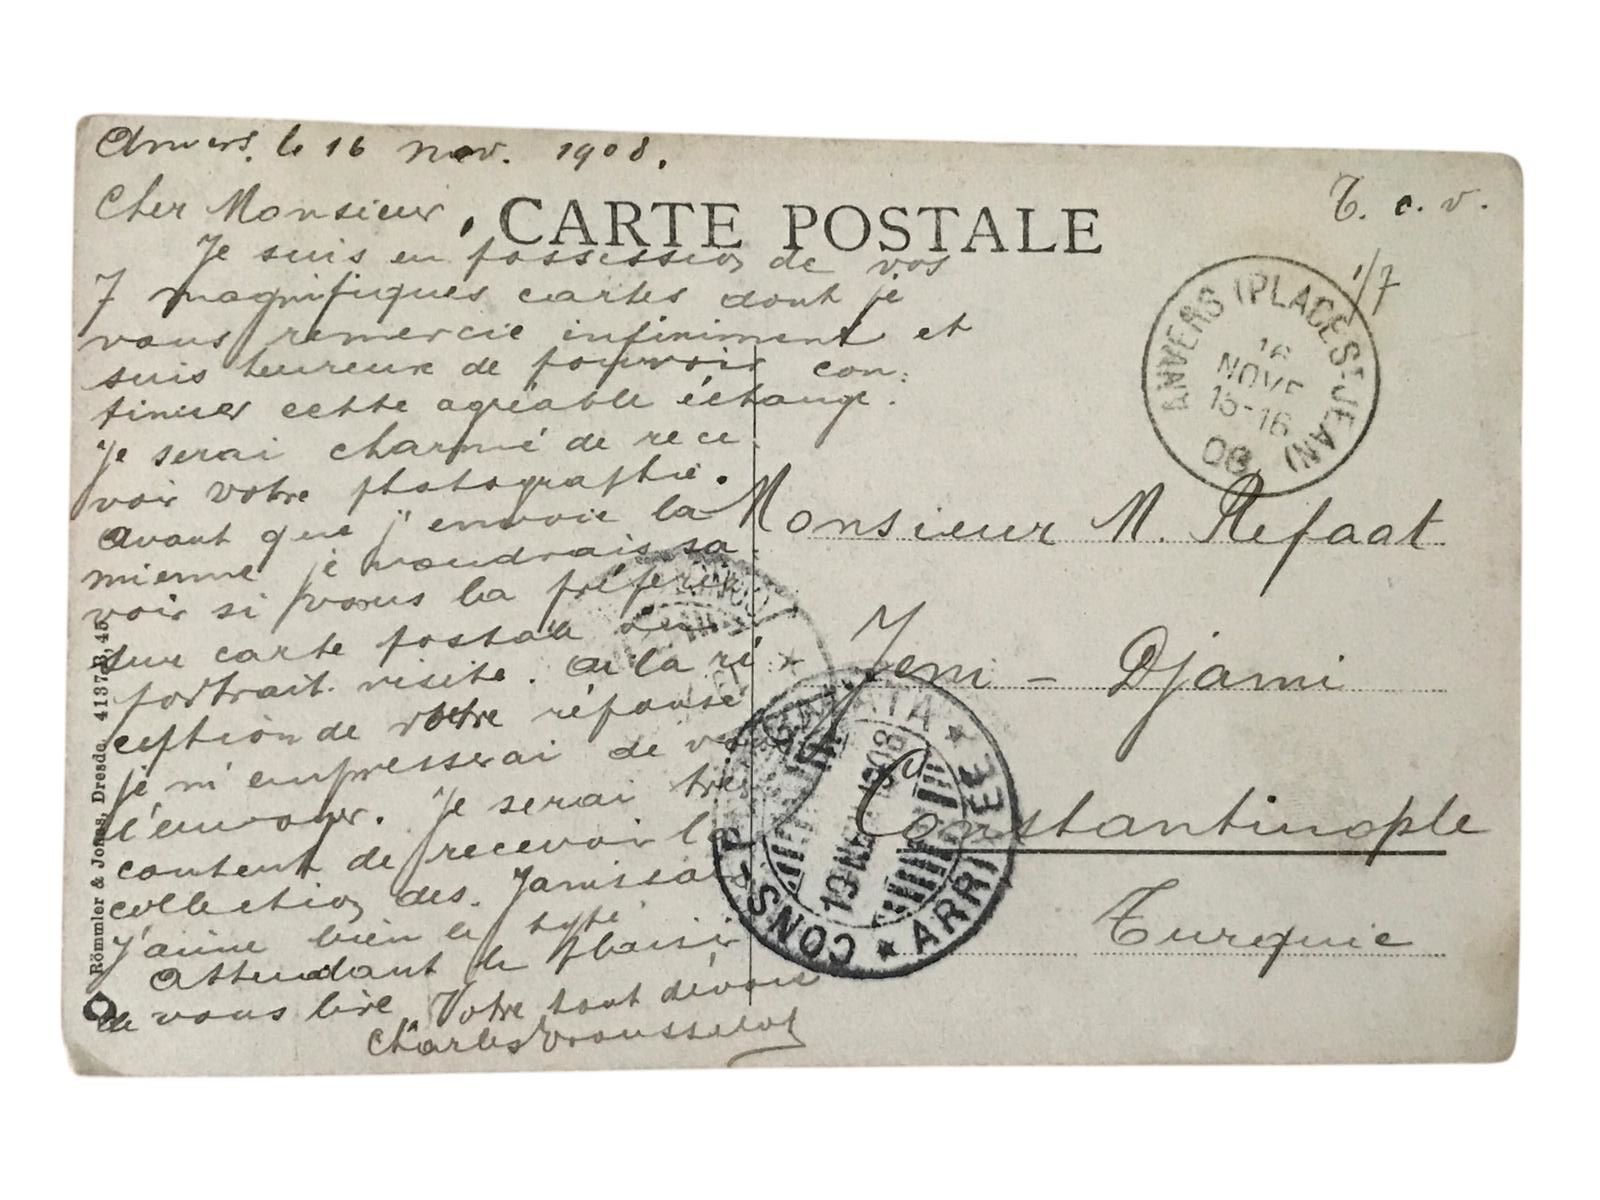 Anvers, le 16 nov. 1908.
Cher Monsieur,
CARTE POSTALE
T. c. v.
1/7
Je suis en possession de vos
7 magnifiques cartes dont je
vous remercie infiniment et
suis heureux de pouvoir con-
tinuer cette agréable échange.
Je serai charmé de rece
voir votre photographie.
Avant que j'envoie la
mienne je voudrais sa
voir si vous la préferez
sur carte postale ou
portrait visite. A la ré
ception de votre réponse
je m'empresserai de vous
l'envoyer. Je serai très
content de recevoir la
collection des Janissai
J'aime bien le type
Attendant le plaisir
de vous lire Votre tout dévoué
Charles Brousselot
ANVERS (PLACE ST-JEAN)
16
NOVE
15-16
08
Monsieur M. Refaat
Jeni - Djami
Constantinople
Turquie
GALATA
ARRIVEE
CONS-P
19 NOV 1908
Römmler & Jonas, Dresde 4137 B, 45